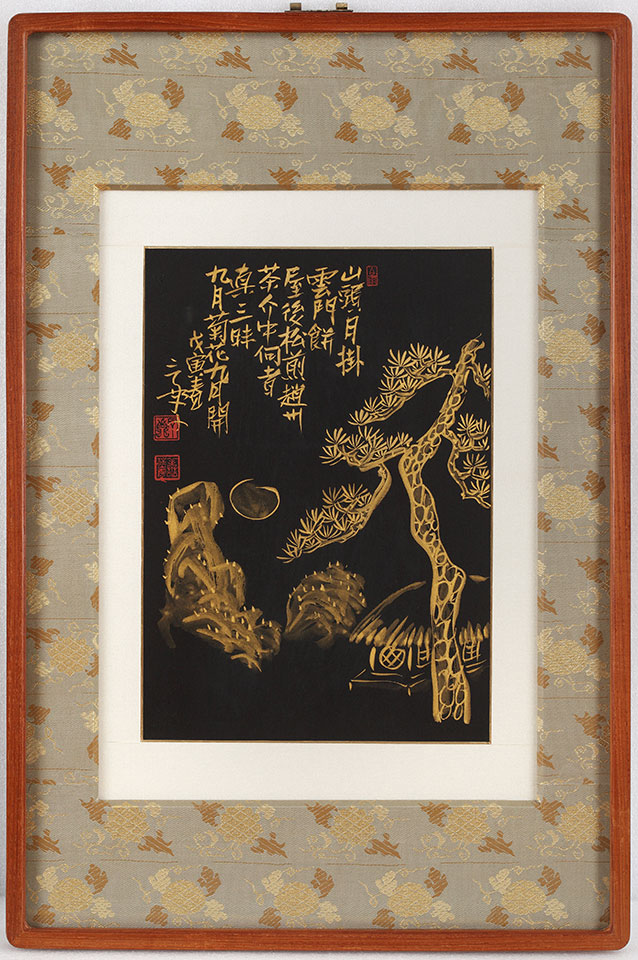 山頭月掛
雲門餅
屋後松煎趙州
茶个中何者
真三昧
九月菊花九月開
戊寅